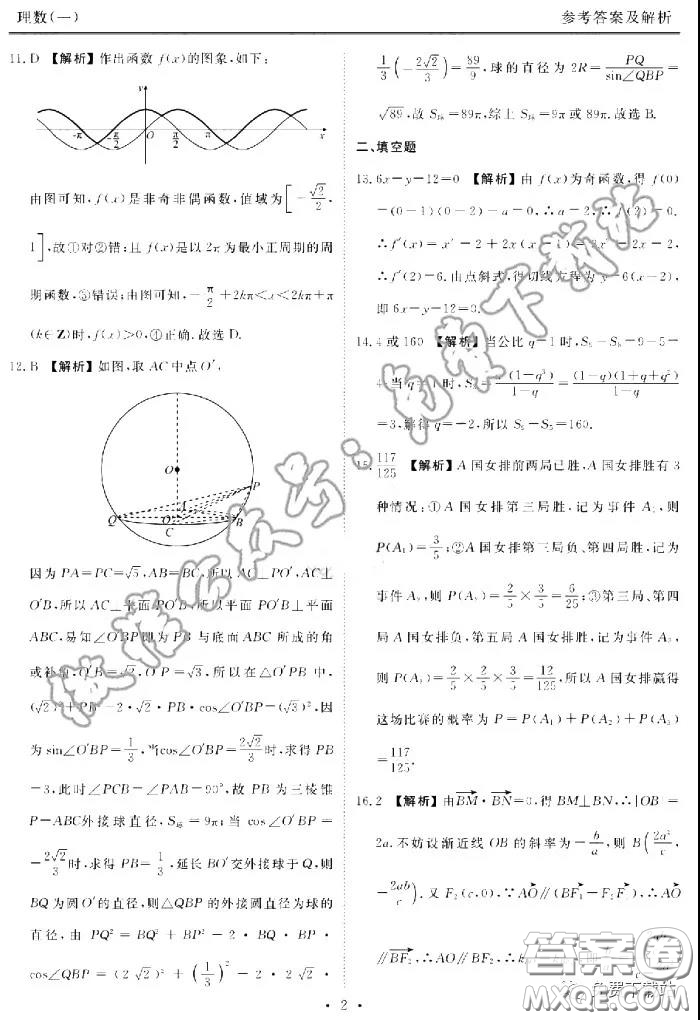 理数(一)
参考答案及解析
11. D 【解析】作出函数 f(x)的图象,如下:
y
-π -π/2 O π/2 π x
由图可知,f(x)是非奇非偶函数,值域为[-√2/2,
1],故①对②错;且 f(x)是以 2π 为最小正周期的周
期函数,③错误;由图可知,-π/2+2kπ<x<2kπ+π/2
(k∈Z)时,f(x)>0,④正确.故选 D.
12. B 【解析】如图,取 AC 中点 O′,
O
P
Q
B
C
因为 PA=PC=√5,AB=BC,所以 AC⊥PO′,AC⊥
O′B,所以 AC⊥平面 PO′B,所以平面 PO′B⊥平面
ABC,易知∠O′BP 即为 PB 与底面 ABC 所成的角
或补角,O′B=√2,O′P=√3,所以在△O′PB 中,
(√2)²+PB²-2·√2·PB·cos∠O′BP=(√3)²,因
为 sin∠O′BP=1/3,当cos∠O′BP=2√2/3时,求得 PB
=3,此时∠PCB=∠PAB=90°,故 PB 为三棱锥
P-ABC外接球直径,S球=9π;当 cos∠O′BP=
-2√2/3时,求得 PB=1/3,延长 BO′交外接球于 Q,则
BQ 为圆 O′的直径,则△QBP 的外接圆直径为球的
直径,由 PQ²=BQ²+BP²-2·BQ·BP·
cos∠QBP=(2√2)²+(1/3)²-2·2√2·
1/3(-2√2/3)=89/9,球的直径为 2R=PQ/sin∠QBP=
√89,故 S球=89π,综上 S球=9π或 89π.故选 B.
二、填空题
13. 6x-y-12=0 【解析】由 f(x)为奇函数,得 f(0)
=(0-1)(0-2)-a=0,∴a=2,∴f(2)=0.
∴f′(x)=x²-2+2x(x-1)=3x²-2x-2,
∴f′(2)=6.由点斜式,得切线方程为 y=6(x-2),
即 6x-y-12=0.
14. 4 或 160 【解析】当公比 q=1 时,S₉-S₅=9-5=
4;当 q≠1 时,
=3,解得 q=-2,所以 S₉-S₅=160.
15. 117/125 【解析】A 国女排前两局已胜,A国女排胜有 3
种情况:①A 国女排第三局胜,记为事件 A₁,则
P(A₁)=3/5;②A 国女排第三局负、第四局胜,记为
事件A₂,则 P(A₂)=2/5×3/5=6/25;③第三局、第四
局 A 国女排负,第五局 A 国女排胜,记为事件 A₃,
则 P(A₃)=2/5×2/5×3/5=12/125,所以 A 国女排赢得
这场比赛的概率为 P=P(A₁)+P(A₂)+P(A₃)=
117/125.
16. 2 【解析】由BM·BN=0,得 BM⊥BN,∴|OB|=
2a.不妨设渐近线 OB 的斜率为-b/a,则 B(2a²/c,
-2ab/c).又 F₂(c,0),∵AO∥(BF₁-F₂F₁),∴AO
∥BF₂,∴AO∥BF₂,
· 2 ·
微信公众号:免费下载站
答案圈
免费下载站